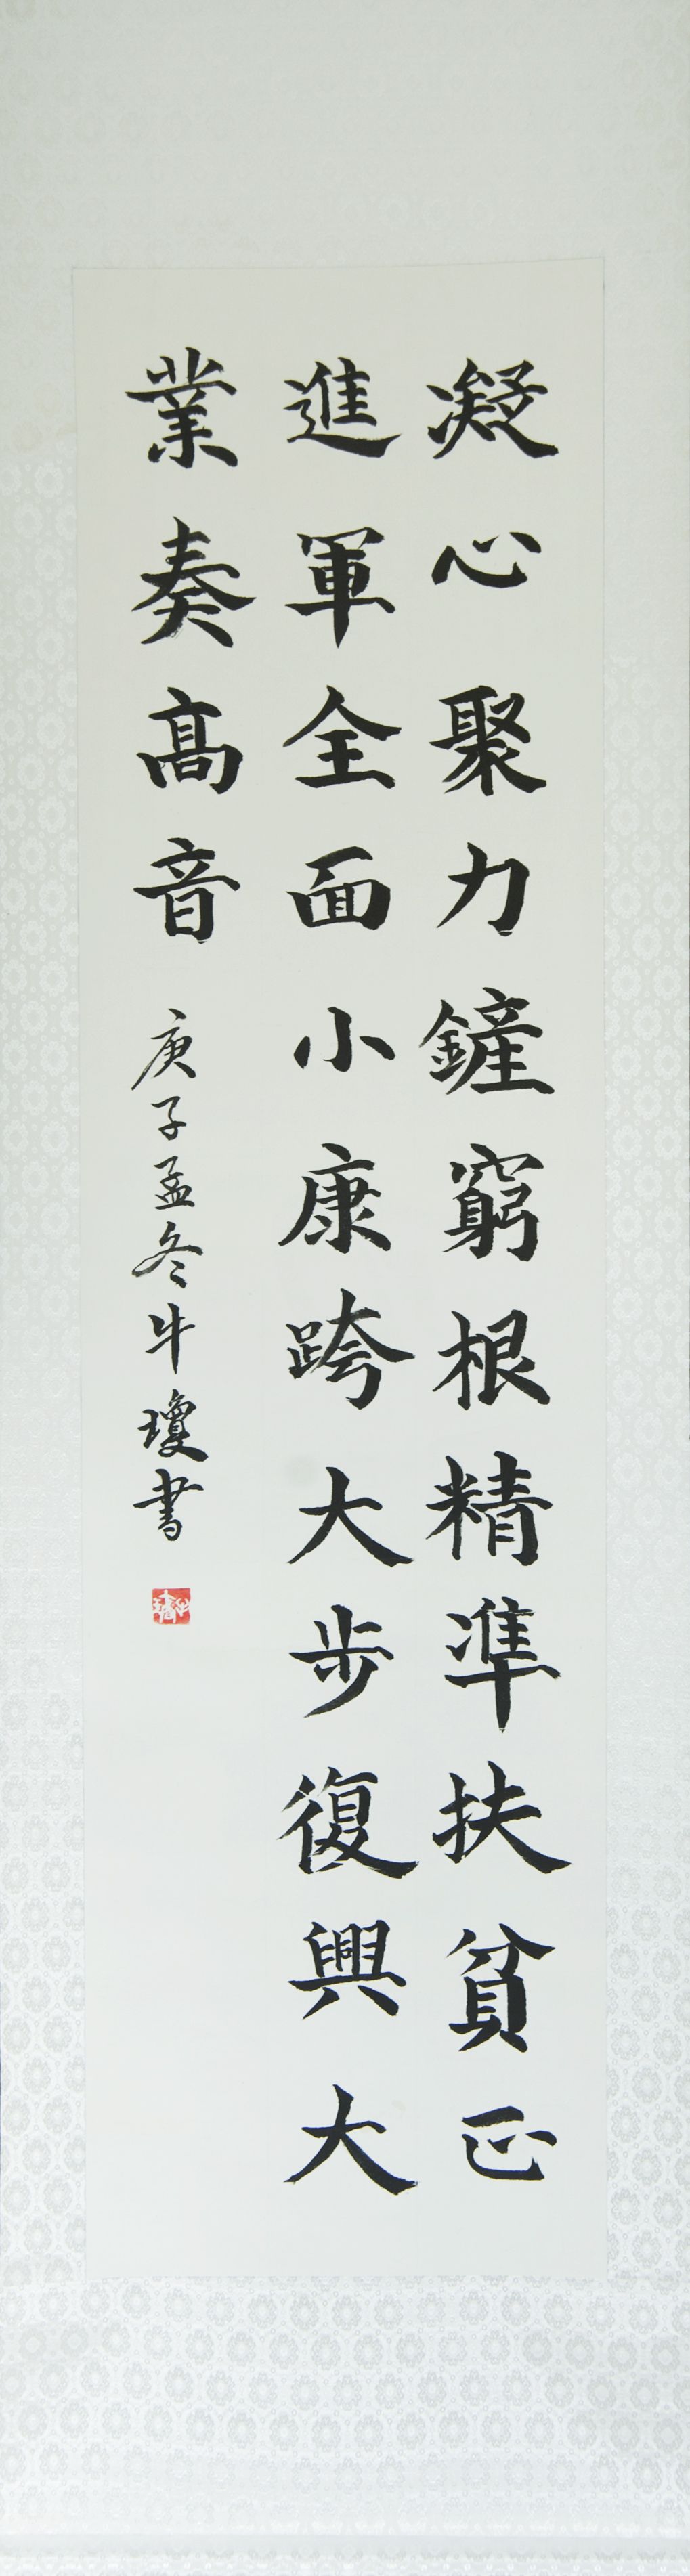 凝心聚力鏟窮根精準扶貧正
進軍全面小康跨大步復興大
業奏高音
庚子孟冬牛瓊書